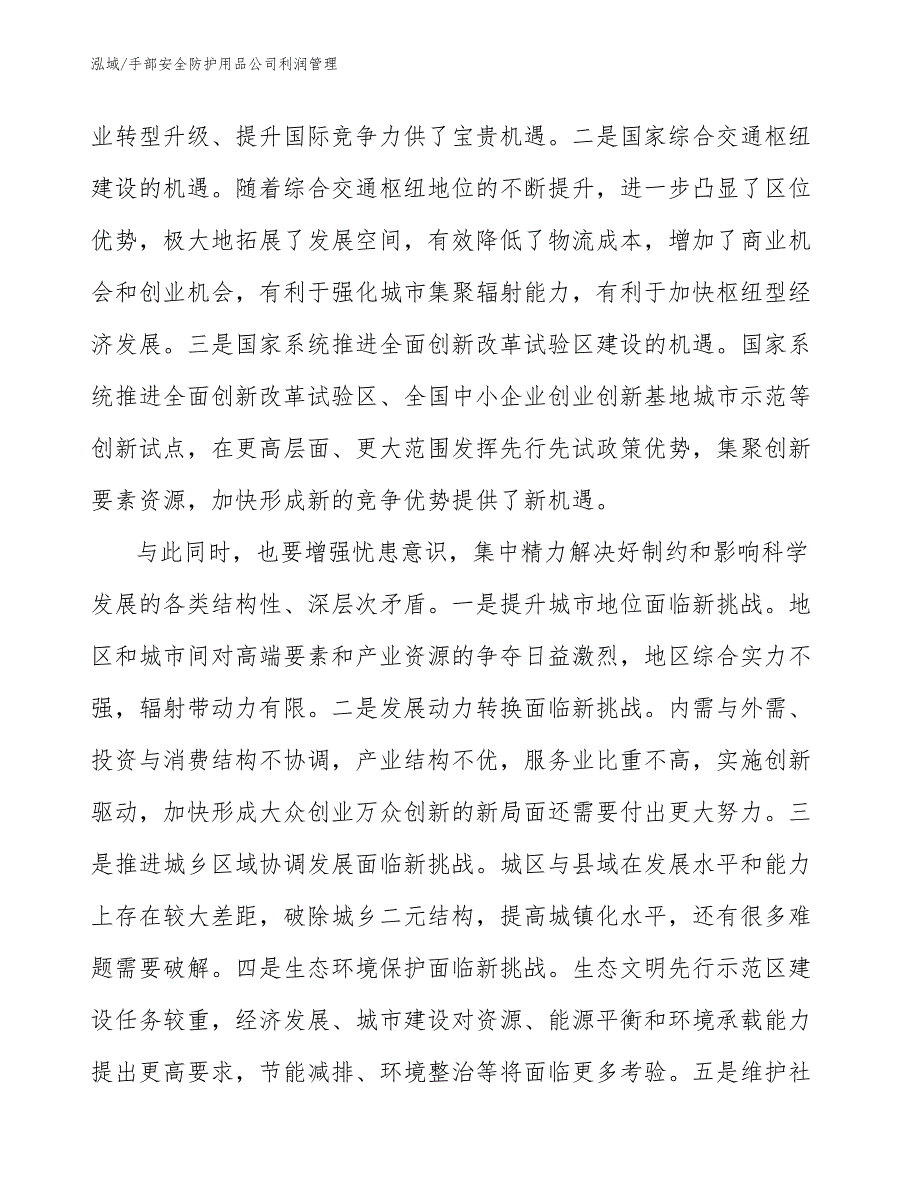 泓域/手部安全防护用品公司利润管理
业转型升级、提升国际竞争力供了宝贵机遇。二是国家综合交通枢纽
建设的机遇。随着综合交通枢纽地位的不断提升，进一步凸显了区位
优势，极大地拓展了发展空间，有效降低了物流成本，增加了商业机
会和创业机会，有利于强化城市集聚辐射能力，有利于加快枢纽型经
济发展。三是国家系统推进全面创新改革试验区建设的机遇。国家系
统推进全面创新改革试验区、全国中小企业创业创新基地城市示范等
创新试点，在更高层面、更大范围发挥先行先试政策优势，集聚创新
要素资源，加快形成新的竞争优势提供了新机遇。
与此同时，也要增强忧患意识，集中精力解决好制约和影响科学
发展的各类结构性、深层次矛盾。一是提升城市地位面临新挑战。地
区和城市间对高端要素和产业资源的争夺日益激烈，地区综合实力不
强，辐射带动力有限。二是发展动力转换面临新挑战。内需与外需、
投资与消费结构不协调，产业结构不优，服务业比重不高，实施创新
驱动，加快形成大众创业万众创新的新局面还需要付出更大努力。三
是推进城乡区域协调发展面临新挑战。城区与县域在发展水平和能力
上存在较大差距，破除城乡二元结构，提高城镇化水平，还有很多难
题需要破解。四是生态环境保护面临新挑战。生态文明先行示范区建
设任务较重，经济发展、城市建设对资源、能源平衡和环境承载能力
提出更高要求，节能减排、环境整治等将面临更多考验。五是维护社